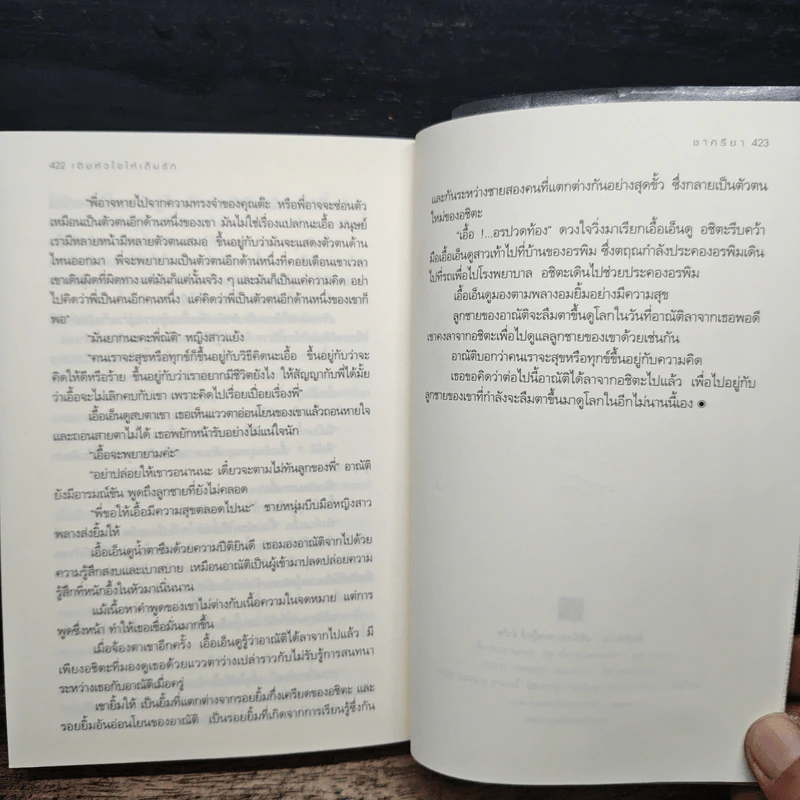 422 เติมหัวใจให้เต็มรัก
"พี่อาจหายไปจากความทรงจำของคุณต๊ะ หรือพี่อาจจะซ่อนตัว
เหมือนเป็นตัวตนอีกด้านหนึ่งของเขา มันไม่ใช่เรื่องแปลกนะเอื้อ มนุษย์
เรามีหลายหน้ามีหลายตัวตนเสมอ ขึ้นอยู่กับว่ามันจะแสดงตัวตนด้าน
ไหนออกมา พี่จะพยายามเป็นตัวตนอีกด้านหนึ่งที่คอยเตือนเขาเวลา
เขาเดินผิดที่ผิดทาง แต่มันก็แค่นั้นจริง ๆ และมันก็เป็นแค่ความคิด อย่า
ไปคิดว่าพี่เป็นคนอีกคนหนึ่ง แค่คิดว่าพี่เป็นตัวตนอีกด้านหนึ่งของเขาก็
พอ"
"มันยากนะคะพี่ณัติ" หญิงสาวแย้ง
"คนเราจะสุขหรือทุกข์ก็ขึ้นอยู่กับวิธีคิดนะเอื้อ ขึ้นอยู่กับว่าจะ
คิดให้ดีหรือร้าย ขึ้นอยู่กับว่าเราอยากมีชีวิตยังไง ให้สัญญากับพี่ได้มั้ย
ว่าเอื้อจะไม่เลิกคบกับเขา เพราะคิดไปเรื่อยเปื่อยเรื่องพี่"
เอื้อเอ็นดูสบตาเขา เธอเห็นแววตาอ่อนโยนของเขาแล้วถอนหายใจ
และถอนสายตาไม่ได้ เธอพยักหน้ารับอย่างไม่แน่ใจนัก
"เอื้อจะพยายามค่ะ"
"อย่าปล่อยให้เขารอนานนะ เดี๋ยวจะตามไม่ทันลูกของพี่" อาณัติ
ยังมีอารมณ์ขัน พูดถึงลูกชายที่ยังไม่คลอด
"พี่ขอให้เอื้อมีความสุขตลอดไปนะ" ชายหนุ่มบีบมือหญิงสาว
พลางส่งยิ้มให้
เอื้อเอ็นดูน้ำตาซึมด้วยความปีติยินดี เธอมองอาณัติจากไปด้วย
ความรู้สึกสงบและเบาสบาย เหมือนอาณัติเป็นผู้เข้ามาปลดปล่อยความ
รู้สึกที่หนักอึ้งในหัวมาเนิ่นนาน
แม้เนื้อหาคำพูดของเขาไม่ต่างกับเนื้อความในจดหมาย แต่การ
พูดซึ่งหน้า ทำให้เธอเชื่อมั่นมากขึ้น
เมื่อจ้องตาเขาอีกครั้ง เอื้อเอ็นดูรู้ว่าอาณัติได้ลาจากไปแล้ว มี
เพียงอชิตะที่มองดูเธอด้วยแววตาว่างเปล่าราวกับไม่รับรู้การสนทนา
ระหว่างเธอกับอาณัติเมื่อครู่
เขายิ้มให้ เป็นยิ้มที่แตกต่างจากรอยยิ้มกึ่งเครียดของอชิตะ และ
รอยยิ้มอันอ่อนโยนของอาณัติ เป็นรอยยิ้มที่เกิดจากการเรียนรู้ซึ่งกัน
ชาคริยา 423
และกันระหว่างชายสองคนที่แตกต่างกันอย่างสุดขั้ว ซึ่งกลายเป็นตัวตน
ใหม่ของอชิตะ
"เอื้อ !...อรปวดท้อง" ดวงใจวิ่งมาเรียกเอื้อเอ็นดู อชิตะรีบคว้า
มือเอื้อเอ็นดูสาวเท้าไปที่บ้านของอรพิม ซึ่งตฤณกำลังประคองอรพิมเดิน
ไปที่รถเพื่อไปโรงพยาบาล อชิตะเดินไปช่วยประคองอรพิม
เอื้อเอ็นดูมองตามพลางอมยิ้มอย่างมีความสุข
ลูกชายของอาณัติจะลืมตาขึ้นดูโลกในวันที่อาณัติลาจากเธอพอดี
เขาคงลาจากอชิตะเพื่อไปดูแลลูกชายของเขาด้วยเช่นกัน
อาณัติบอกว่าคนเราจะสุขหรือทุกข์ขึ้นอยู่กับความคิด
เธอขอคิดว่าต่อไปนี้อาณัติได้ลาจากอชิตะไปแล้ว เพื่อไปอยู่กับ
ลูกชายของเขาที่กำลังจะลืมตาขึ้นมาดูโลกในอีกไม่นานนี้เอง ◉